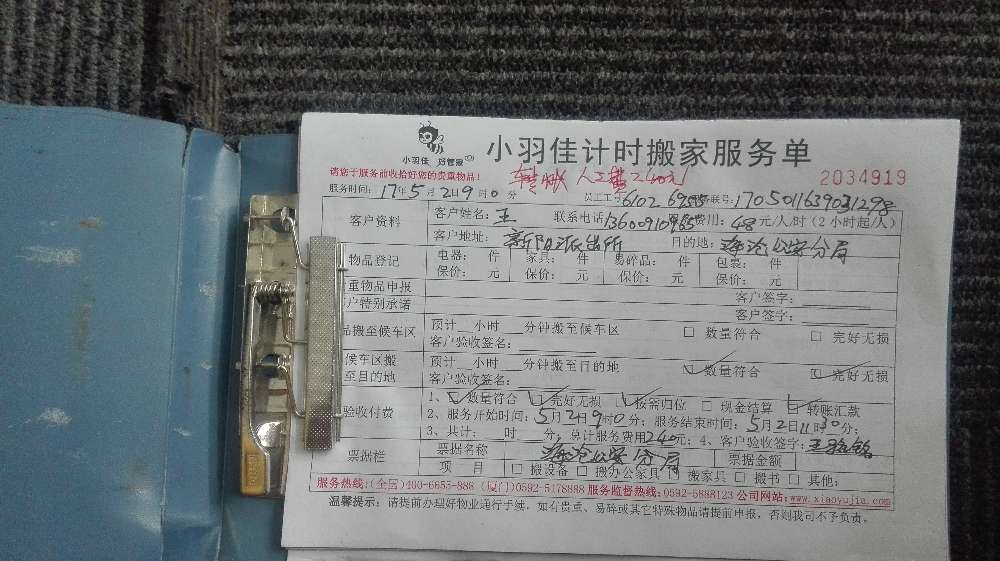 小羽佳 好管家
小羽佳计时搬家服务单
请您于服务前收拾好您的贵重物品!
转账 人工费240元
2034919
服务时间: 17年5月2日9时0分 员工工号 61026955 联号: 1705011639031298
客户资料 客户姓名: 王 联系电话 13600910965 费用: 48元/人/时(2小时起/人)
客户地址: 新阳派出所 目的地: 海沧公安分局
物品登记 电器: 件 家具: 件 易碎品: 件 包裹: 件
保价: 元 保价: 元 保价: 元 保价: 元
重物品申报 客户签字:
户特别承诺 客户签字:
品搬至候车区 预计 小时 分钟搬至候车区 □ 数量符合 □ 完好无损
客户验收签名:
候车区搬至目的地 预计 小时 分钟搬至目的地 ☑ 数量符合 ☑ 完好无损
客户验收签名:
验收付费 1、☑ 数量符合 ☑ 完好无损 ☑ 按需归位 □ 现金结算 ☑ 转账汇款
2、服务开始时间: 5月2日9时0分; 服务结束时间: 5月2日11时30分;
3、共计: 时 分; 总计服务费用240元; 4、客户验收签字:
票据栏 票据名称 海沧公安分局 票据金额
项 目 □ 搬设备 □ 搬办公家具 □ 搬家具 □ 搬书 □ 其他:
服务热线:(全国)400-6655-888 (厦门)0592-5178888 服务监督热线:0592-5888123 公司网站:www.xiaoyujia.com
温馨提示: 请提前办理好物业通行手续, 如有贵重、易碎或其它特殊物品请提前申报, 否则我司不予负责。